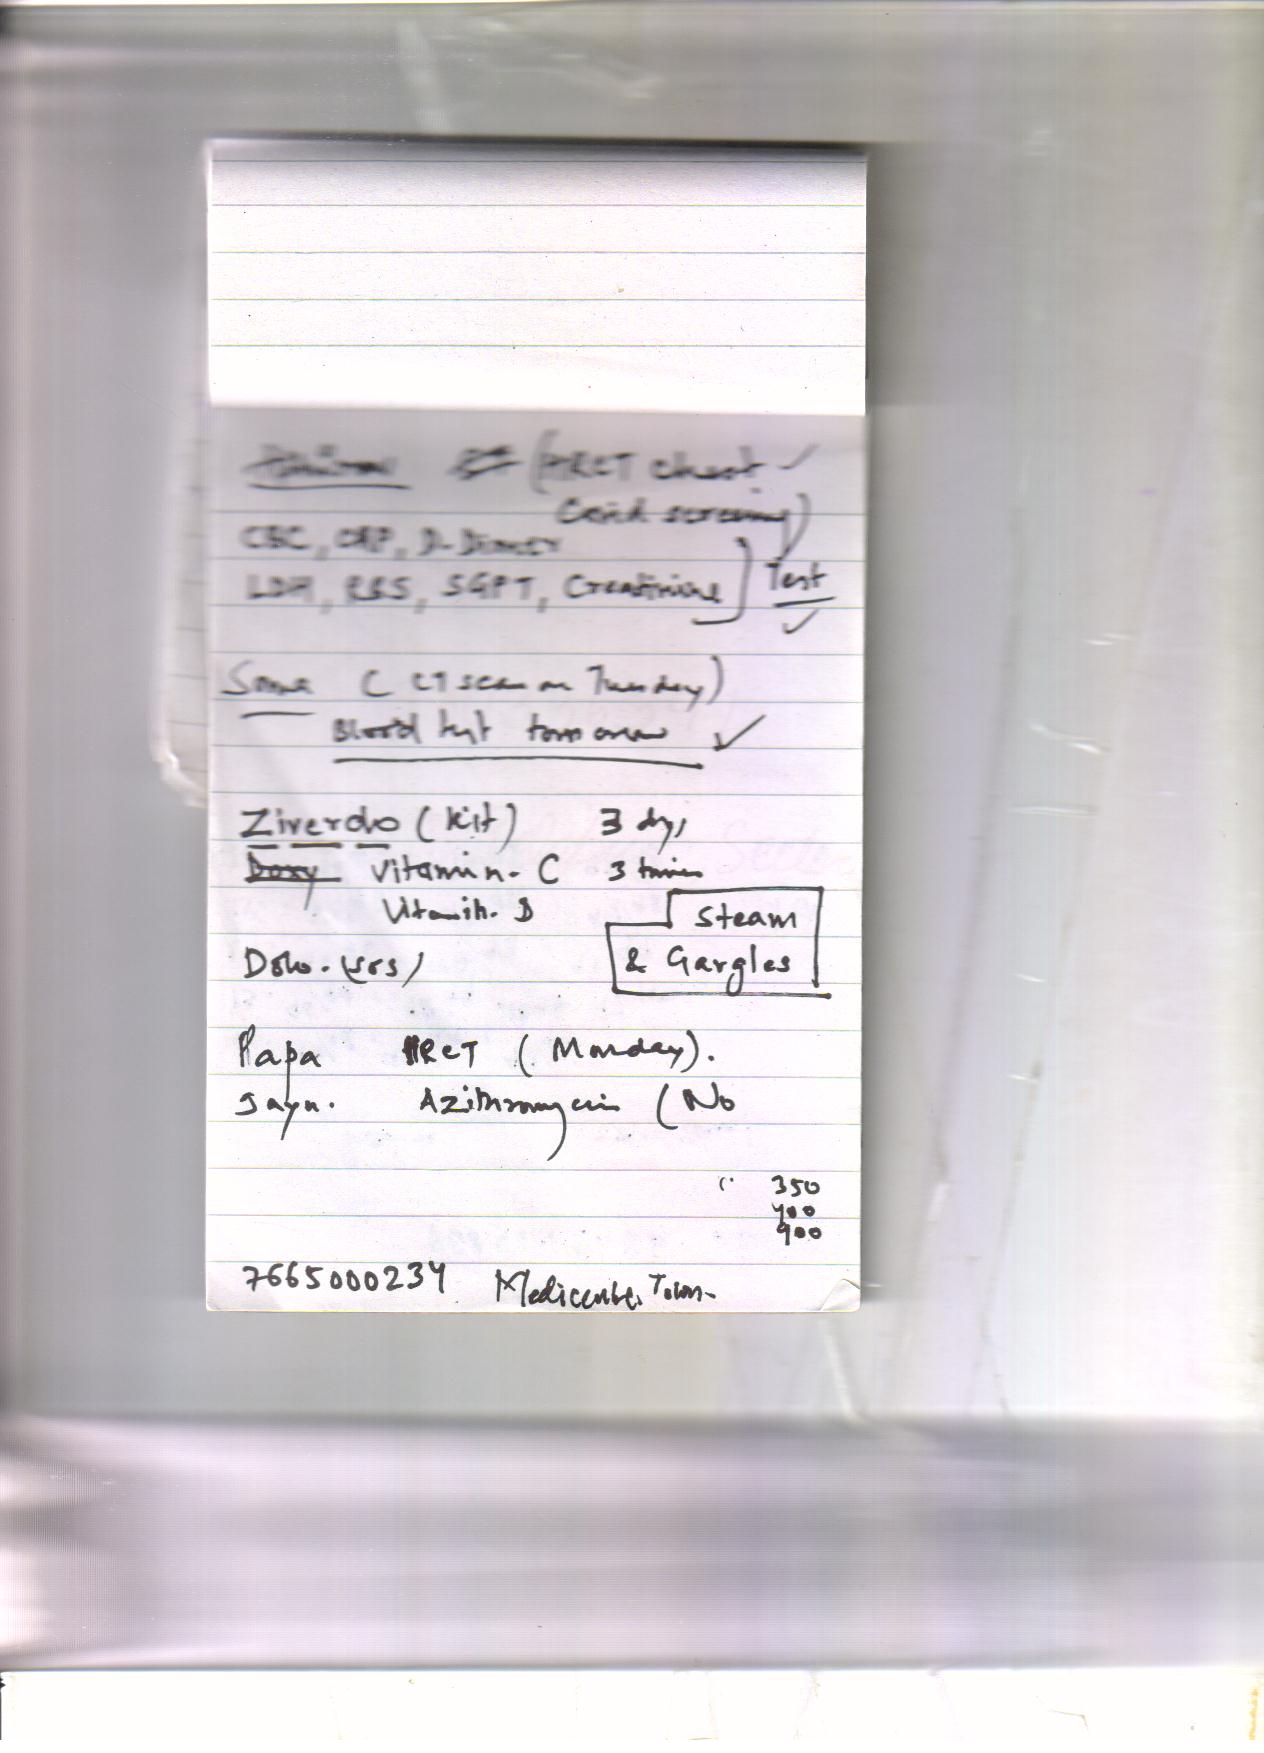 (HRCT chest ✓
Covid screening)
CBC, CRP, D-Dimer
LDH, RBS, SGPT, Creatinine] Test
✓
(CT scan on Tuesday)
Blood test tomorrow ✓
Ziverdo (kit) 3 days
Doxy Vitamin-C 3 times
Vitamin. D
Steam
Dolo. (SOS)
& Gargles
Papa HRCT (Monday).
Azithromycin (No
350
400
900
7665000234